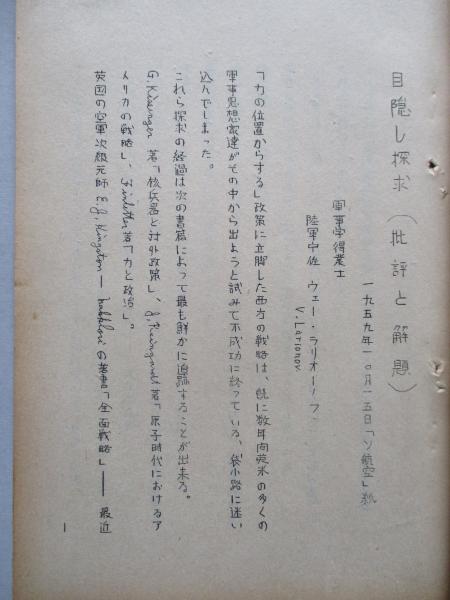 目隠し探求(批評と解題)
一九五九年一〇月一五日「ソ航空」紙
軍事学得業士
陸軍中佐 ウェー・ラリオーノフ
V. Larionov
「力の位置からする」政策に立脚した西方の戦略は、既に数年向英米の多くの
軍事思想家達がその中から出ようと試みて不成功に終っている、袋小路に迷い
込んでしまった。
これら探求の経過は次の書篇によって最も鮮かに追跡することが出来る。
G. Kissinger 著「核兵器と対外政策」、著「原子時代におけるア
メリカの戦略」、Finletter著「力と政治」。
英国の空軍次級元師 E.J. Kingston— の著書「全面戦略」—— 最近
1